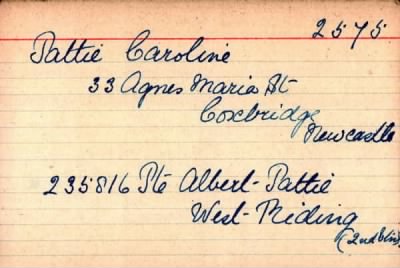 2575
Pattie Caroline
33 Agnes Maria St
Coxbridge
Newcastle
235816 Pte Albert Pattie
West Riding